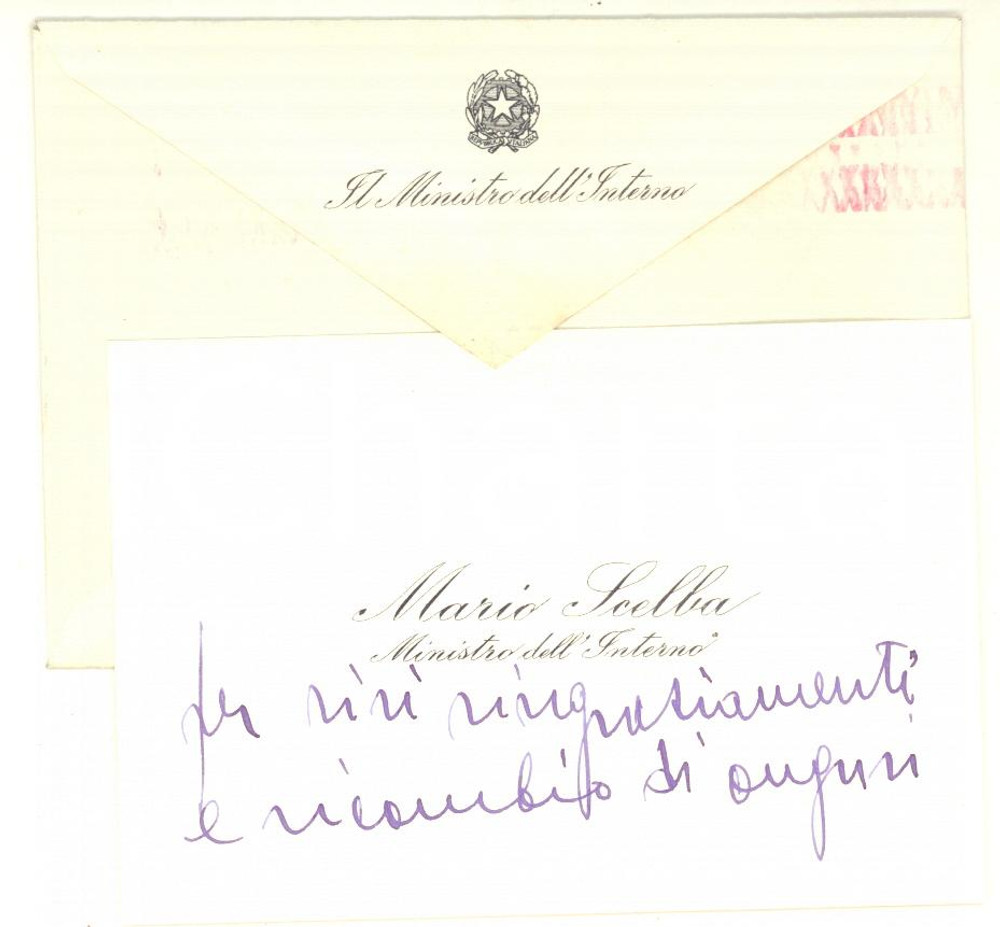 REPUBBLICA ITALIANA
Il Ministro dell'Interno
Charta
Mario Scelba
Ministro dell'Interno
per vivi ringraziamenti
e ricambio di auguri